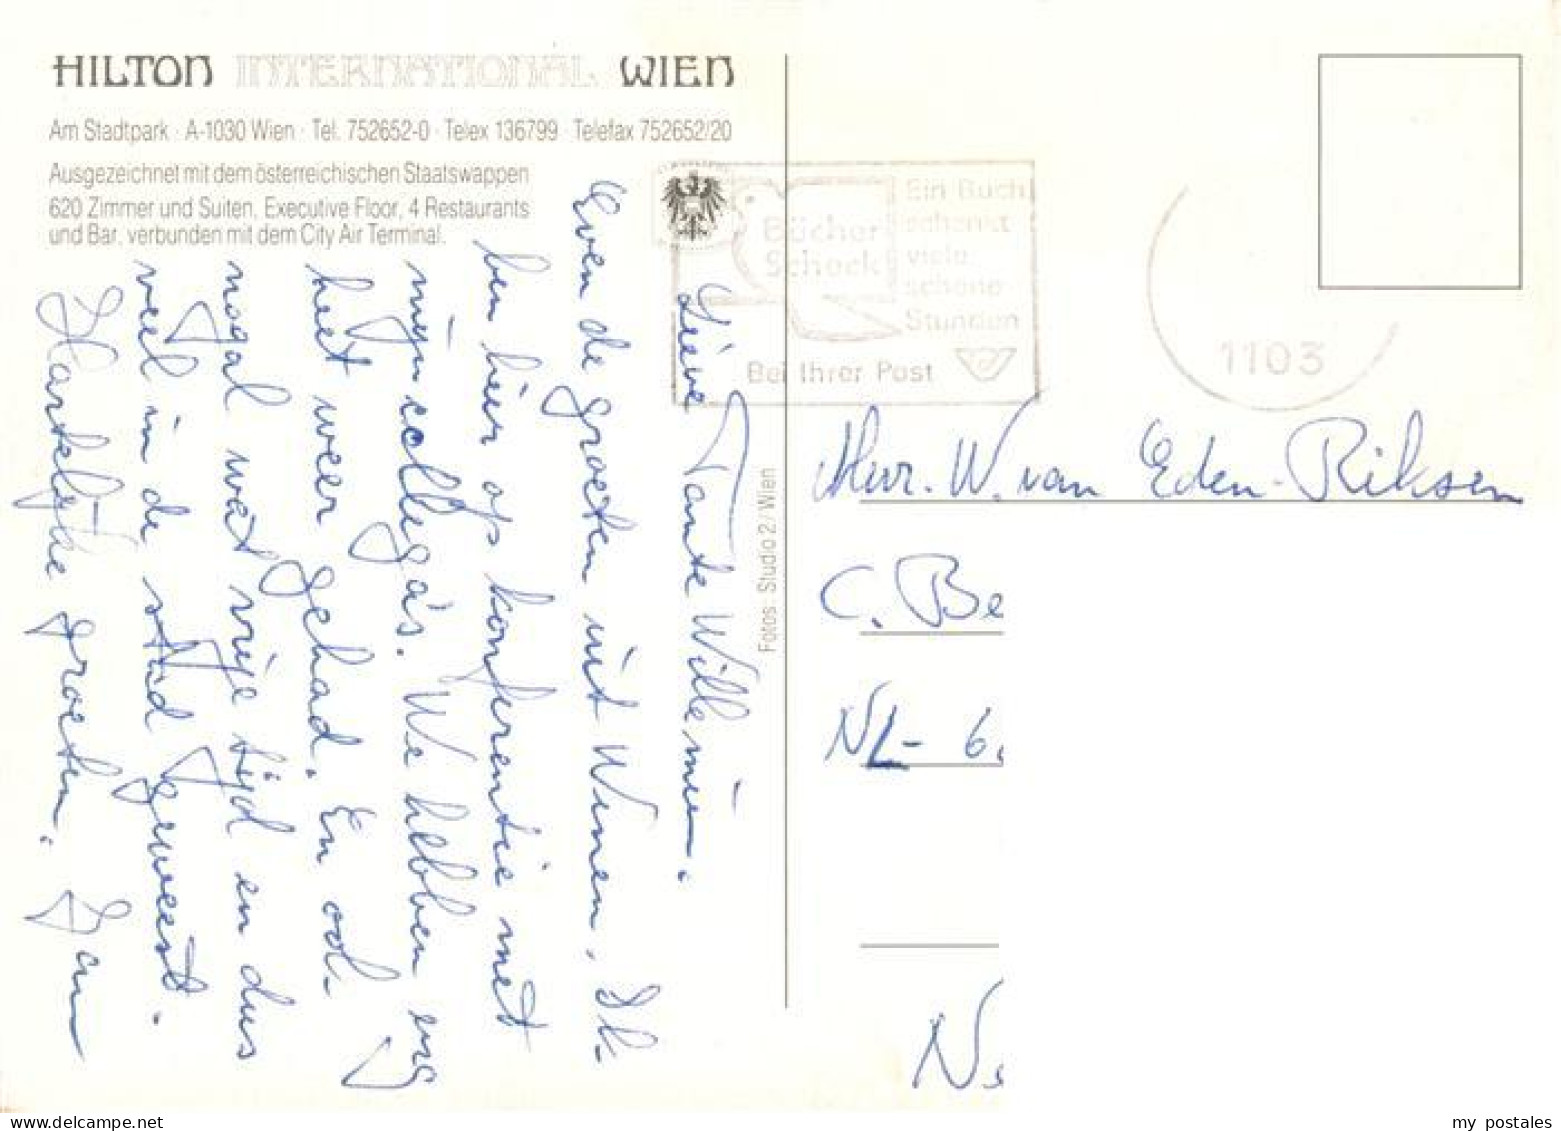 HILTON INTERNATIONAL WIEN
Am Stadtpark · A-1030 Wien · Tel. 752652-0 · Telex 136799 · Telefax 752652/20
Ausgezeichnet mit dem österreichischen Staatswappen
620 Zimmer und Suiten, Executive Floor, 4 Restaurants
und Bar, verbunden mit dem City Air Terminal.
Lieve Tante Willemien.
Even de groeten uit Wenen. Ik
ben hier op konferentie met
mijn collega's. We hebben erg
het weer gehad. En ook
nogal wat vrije tijd en dus
veel in de stad geweest.
Hartelijke groeten. Jan
Fotos: Studio 2 / Wien
Bücher
Schock
Ein Buch
schenkt
viele
schöne
Stunden
Bei Ihrer Post
1103
Mevr. W. van Eden-Riksen
C. Be
NL- 6.
N
my postales